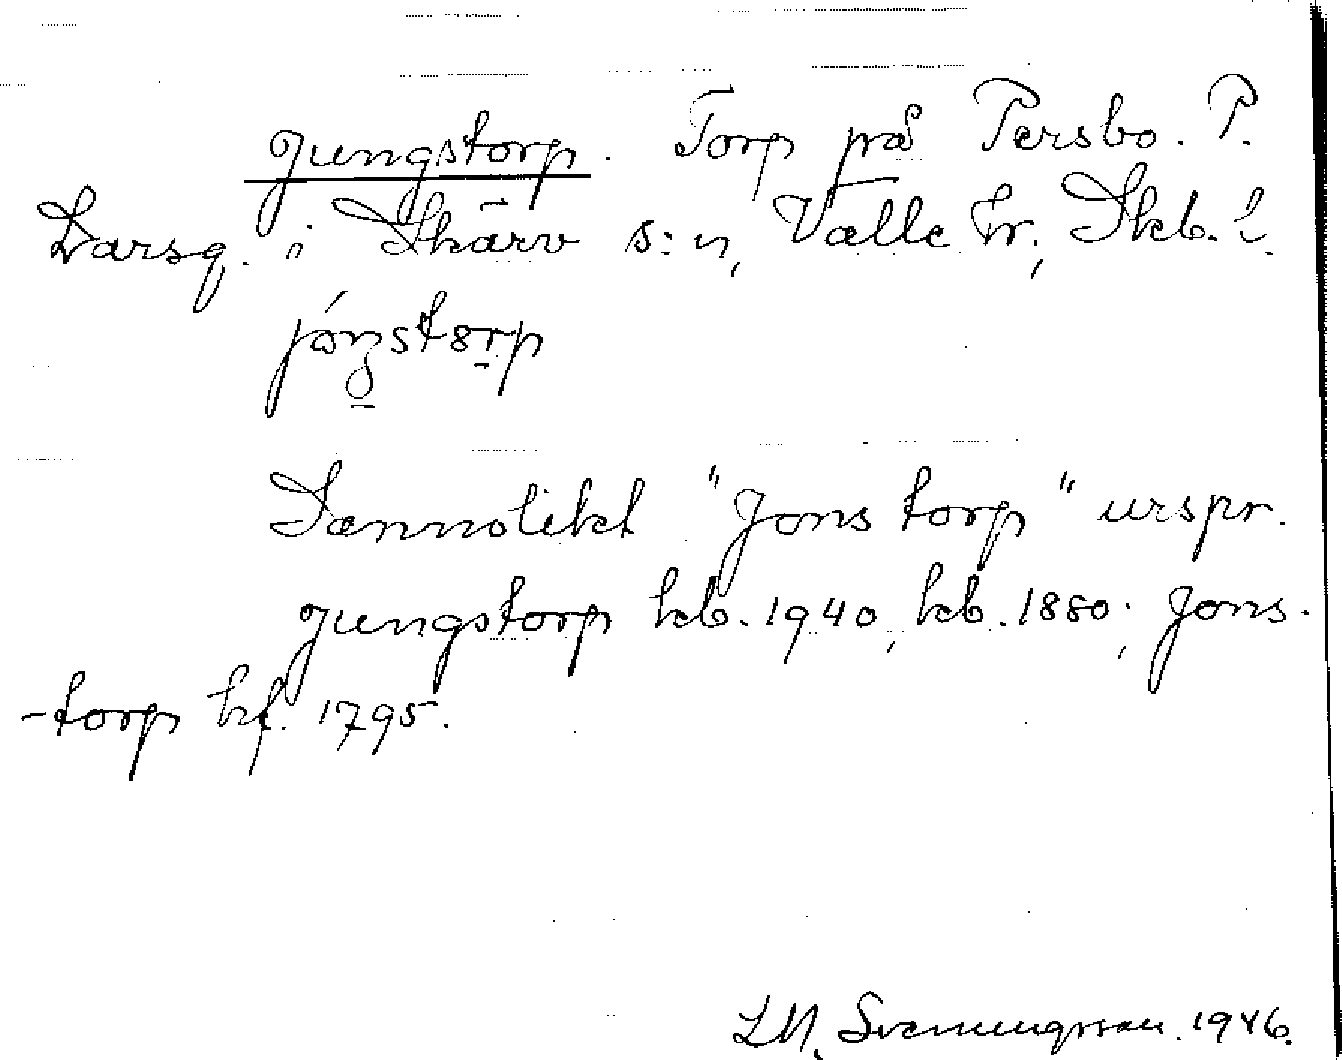 Jungstorp. Torp på Persbo. P.
Larsg. i Skärv s:n, Valle hr; Skb. l.
Sannolikt "Jons torp" urspr.
Jungstorp kb. 1940, kb. 1880; Jons-
-torp hf. 1795.
L.M. Svenungsson. 1946.